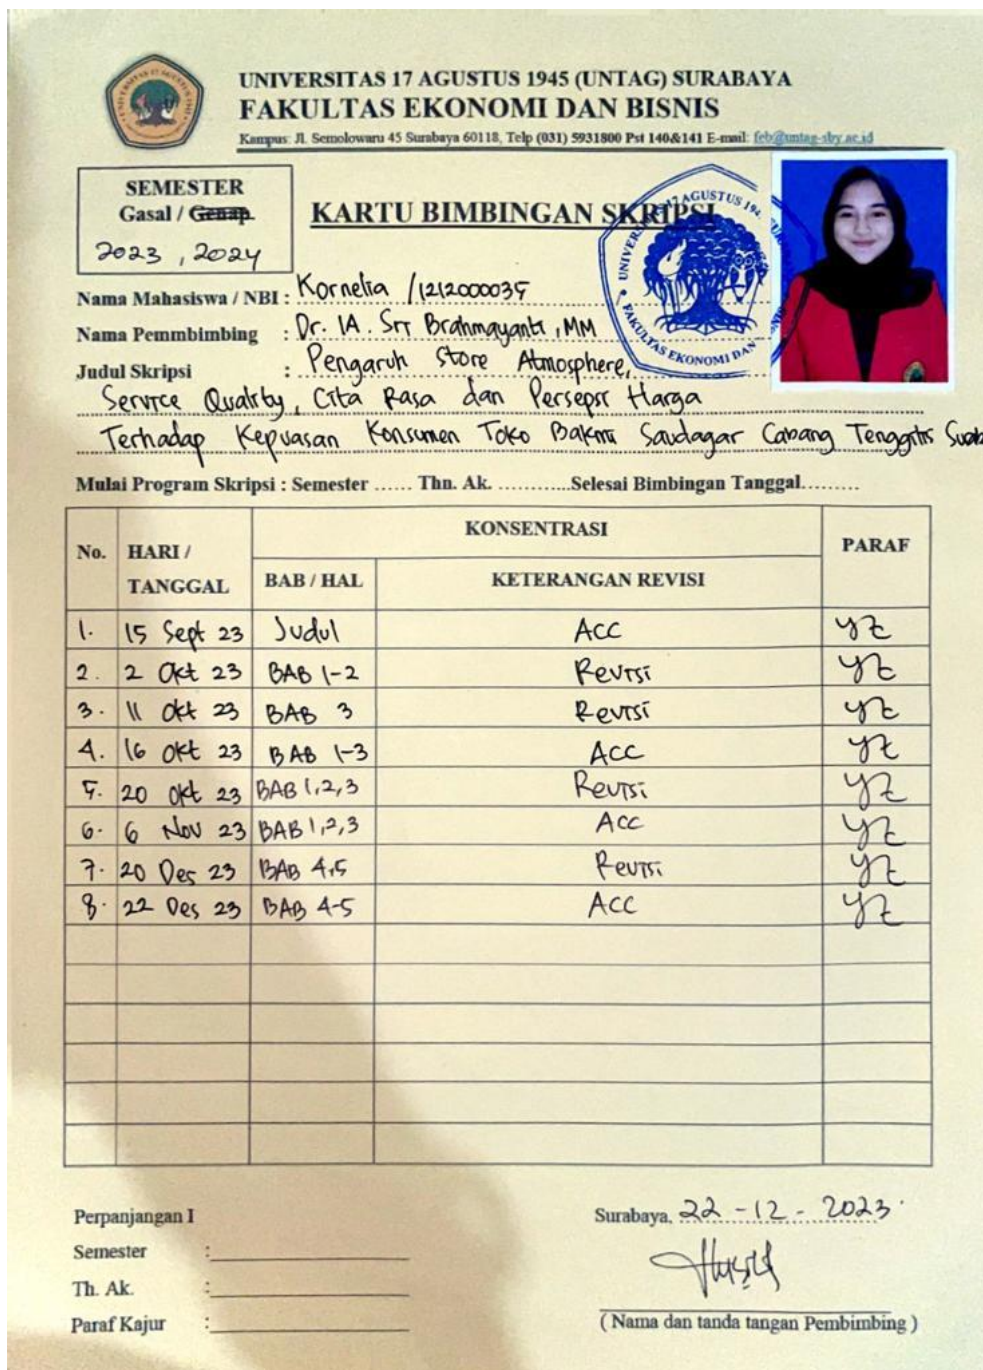 UNIVERSITAS 17 AGUSTUS 1945 (UNTAG) SURABAYA
FAKULTAS EKONOMI DAN BISNIS
Kampus: Jl. Semolowaru 45 Surabaya 60118, Telp (031) 5931800 Pst 140&141 E-mail: feb@untag-sby.ac.id
SEMESTER
Gasal / Genap
2023, 2024
KARTU BIMBINGAN SKRIPSI
FAKULTAS EKONOMI DAN
Nama Mahasiswa / NBI : Kornelia / 1212000035
Nama Pemmbimbing : Dr. IA. Sri Brahmayanti, MM
Judul Skripsi : Pengaruh Store Atmosphere,
Service Quality, Cita Rasa dan Persepsi Harga
Terhadap Kepuasan Konsumen Toko Bakmi Saudagar Cabang Tenggilis
Mulai Program Skripsi : Semester ...... Thn. Ak. ............Selesai Bimbingan Tanggal.........
No. HARI / TANGGAL KONSENTRASI PARAF
BAB / HAL KETERANGAN REVISI
1. 15 Sept 23 Judul ACC
2. 2 Okt 23 BAB 1-2 Revisi
3. 11 Okt 23 BAB 3 Revisi
4. 16 Okt 23 BAB 1-3 ACC
5. 20 Okt 23 BAB 1,2,3 Revisi
6. 6 Nov 23 BAB 1,2,3 Acc
7. 20 Des 23 BAB 4,5 Revisi
8. 22 Des 23 BAB 4-5 ACC
Perpanjangan I
Semester :
Th. Ak. :
Paraf Kajur :
Surabaya, 22-12-2023
( Nama dan tanda tangan Pembimbing )